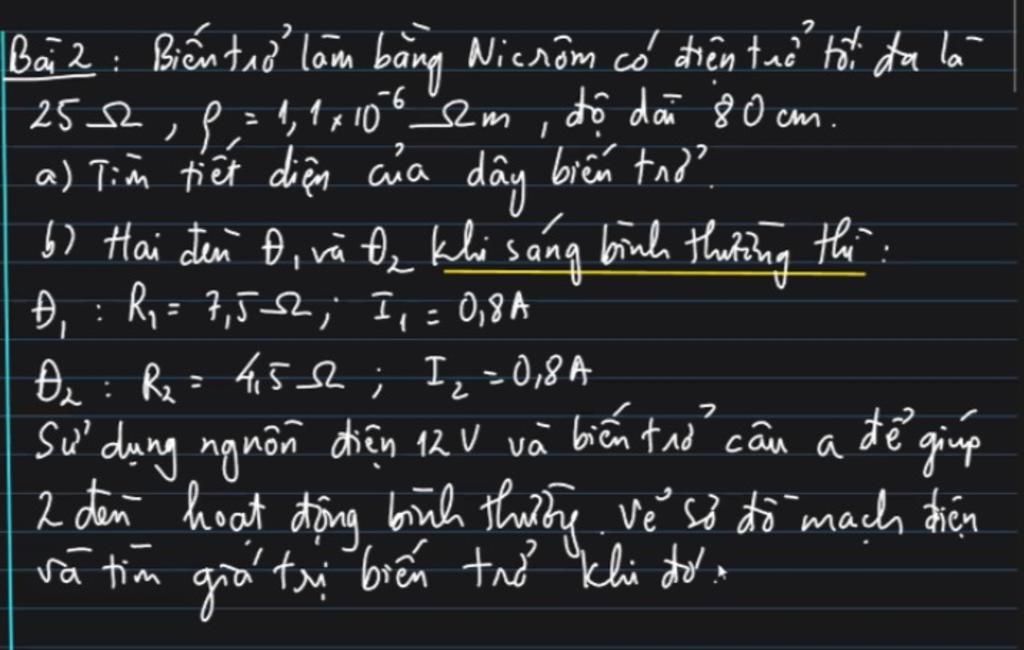 Bài 2 : Biến trở làm bằng Nicrôm có điện trở tối đa là
25 Ω , ρ = 1,1 × 10⁻⁶ Ωm , độ dài 80 cm.
a) Tìm tiết diện của dây biến trở.
b) Hai đèn Đ₁ và Đ₂ khi sáng bình thường thì :
Đ₁ : R₁ = 7,5 Ω ; I₁ = 0,8 A
Đ₂ : R₂ = 4,5 Ω ; I₂ = 0,8 A
Sử dụng nguồn điện 12 V và biến trở câu a để giúp
2 đèn hoạt động bình thường. Vẽ sơ đồ mạch điện
và tìm giá trị biến trở khi đó.